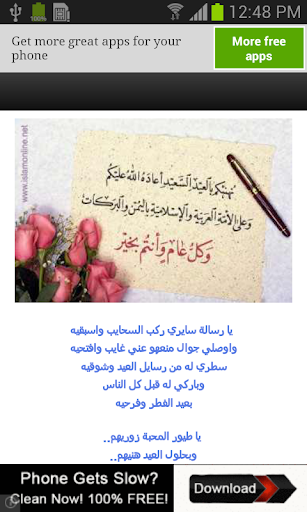 100%
12:48 PM
Get more great apps for your
phone
More free
apps
www.islamonline.net
نهنئكم بالعيد السعيد أعاده الله عليكم
وعلى الأمة العربية والإسلامية باليمن والبركات
وكل عام وأنتم بخير
يا رسالة سايري ركب السحايب واسبقيه
واوصلي جوال منعهو عني غايب وافتحيه
سطري له من رسايل العيد وشوقيه
وباركي له قبل كل الناس
بعيد الفطر وفرحيه
يا طيور المحبة زوريهم..
وبحلول العيد هنيهم..
Phone Gets Slow?
Clean Now! 100% FREE!
Download